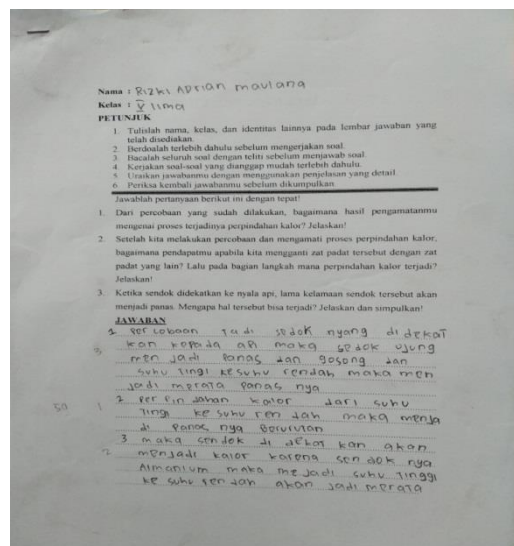 Nama : Rizki Adrian maulana
Kelas : V lima
PETUNJUK
1. Tulislah nama, kelas, dan identitas lainnya pada lembar jawaban yang
telah disediakan
2. Berdoalah terlebih dahulu sebelum mengerjakan soal
3. Bacalah seluruh soal dengan teliti sebelum menjawab soal
4. Kerjakan soal-soal yang dianggap mudah terlebih dahulu.
5. Uraikan jawabanmu dengan menggunakan penjelasan yang detail
6. Periksa kembali jawabanmu sebelum dikumpulkan
Jawablah pertanyaan berikut ini dengan tepat!
1. Dari percobaan yang sudah dilakukan, bagaimana hasil pengamatanmu
mengenai proses terjadinya perpindahan kalor? Jelaskan!
2. Setelah kita melakukan percobaan dan mengamati proses perpindahan kalor,
bagaimana pendapatmu apabila kita mengganti zat padat tersebut dengan zat
padat yang lain? Lalu pada bagian langkah mana perpindahan kalor terjadi?
Jelaskan!
3. Ketika sendok didekatkan ke nyala api, lama kelamaan sendok tersebut akan
menjadi panas. Mengapa hal tersebut bisa terjadi? Jelaskan dan simpulkan!
JAWABAN
1 percobaan tadi sedok nyang di dekat
kan kepada api maka sedok ujung
men jadi panas dan gosong dan
suhu tingi kesuhu rendah maka men
jadi merata panas nya
2 per pin dahan kalor dari suhu
Tingi ke suhu ren dah maka menja
di panas nya berurutan
3 maka sendok di dekat kan akan
menjadi kalor karena sen dok nya
Almanium maka mejadi suhu tinggi
ke suhu ren dah akan jadi merata
50